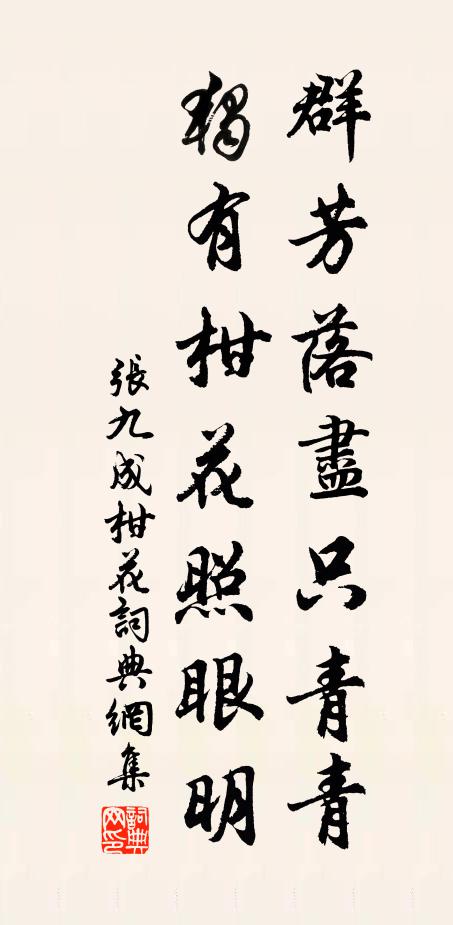 群芳落盡只青青
獨有柑花照眼明
張九成柑花詞典網集
詞典網印